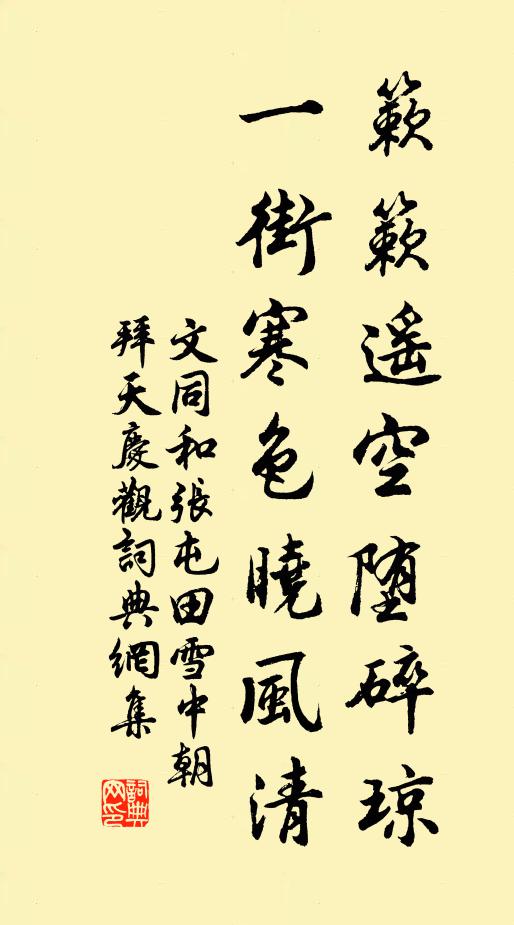 簌簌遥空堕碎琼
一街寒色曉風清
文同和張屯田雪中朝
拜天慶觀詞典網集
詞典網印